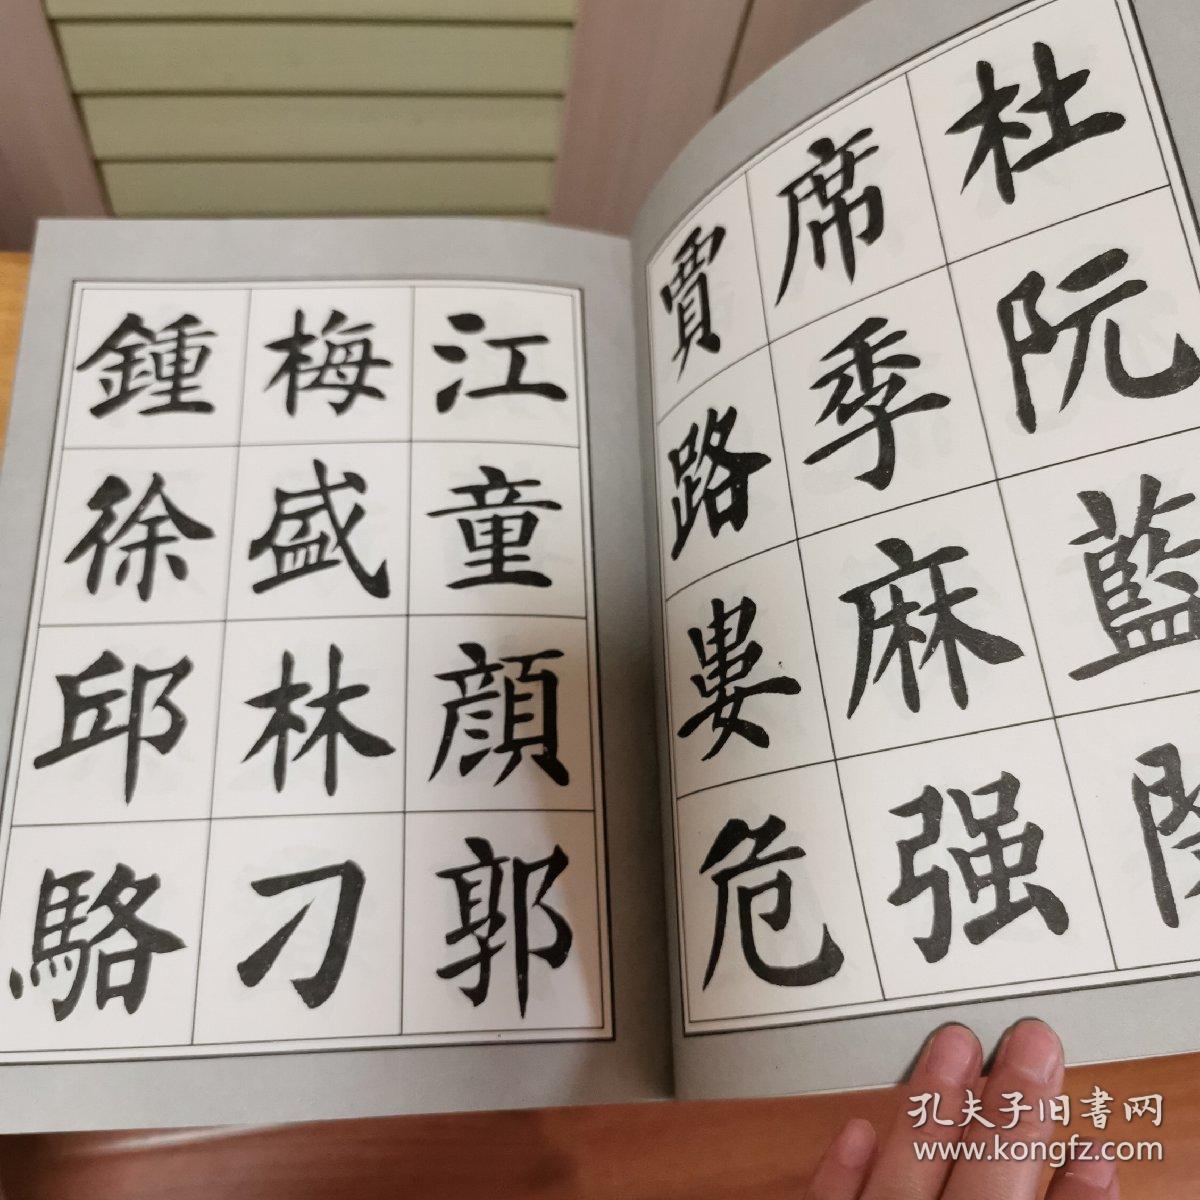 杜阮藍
席季麻强
賈路婁危
江童顔郭
梅盛林刁
鍾徐邱駱
孔夫子旧書网
www.kongfz.com